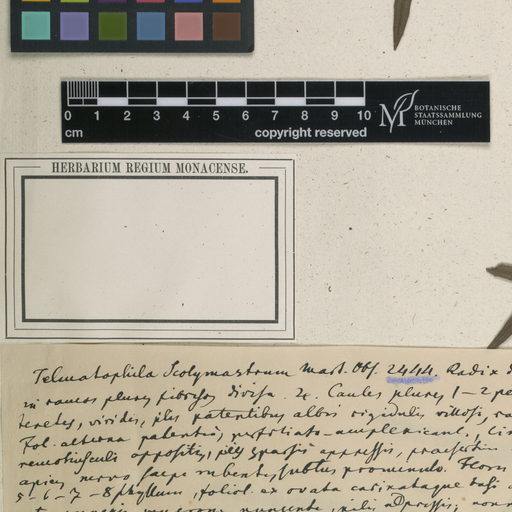 0 1 2 3 4 5 6 7 8 9 10
cm copyright reserved
BOTANISCHE
STAATSSAMMLUNG
MÜNCHEN
HERBARIUM REGIUM MONACENSE.
Telmatophila Scolymastrum Mart. Obs. 2444. Radix
in ramos plures fibrosos divisa. 4. Caules plures 1-2
teretes, virides, pilis patentibus albis rigidulis villosi,
Fol. alterna patentia, perfoliato-amplexicaul.,
remotiuscule apposita, pilis sparsis appressis, praesertim
apice, nervo saepe rubente, subtus prominulo. Flores
5-6-7-8 phyllum, foliol. ex ovata carinataque basi